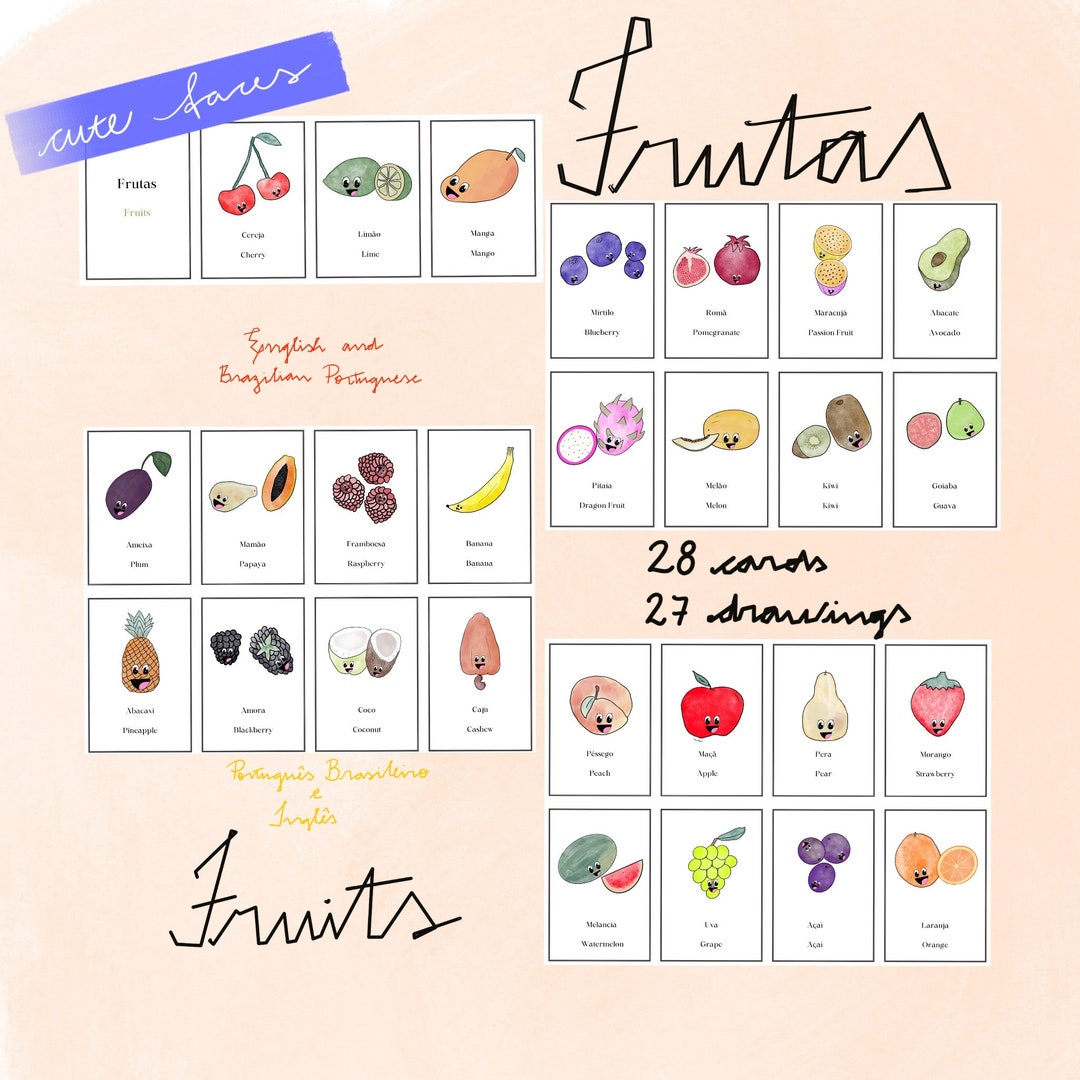 cute faces
Frutas
Frutas
Fruits
Cereja
Cherry
Limão
Lime
Manga
Mango
English and
Brazilian Portuguese
Mirtilo
Blueberry
Romã
Pomegranate
Maracujá
Passion Fruit
Abacate
Avocado
Pitaia
Dragon Fruit
Melão
Melon
Kiwi
Kiwi
Goiaba
Guava
Ameixa
Plum
Mamão
Papaya
Framboesa
Raspberry
Banana
Banana
Abacaxi
Pineapple
Amora
Blackberry
Coco
Coconut
Caju
Cashew
28 cards
27 drawings
Português Brasileiro
e
Inglês
Fruits
Pêssego
Peach
Maçã
Apple
Pera
Pear
Morango
Strawberry
Melancia
Watermelon
Uva
Grape
Açaí
Açaí
Laranja
Orange